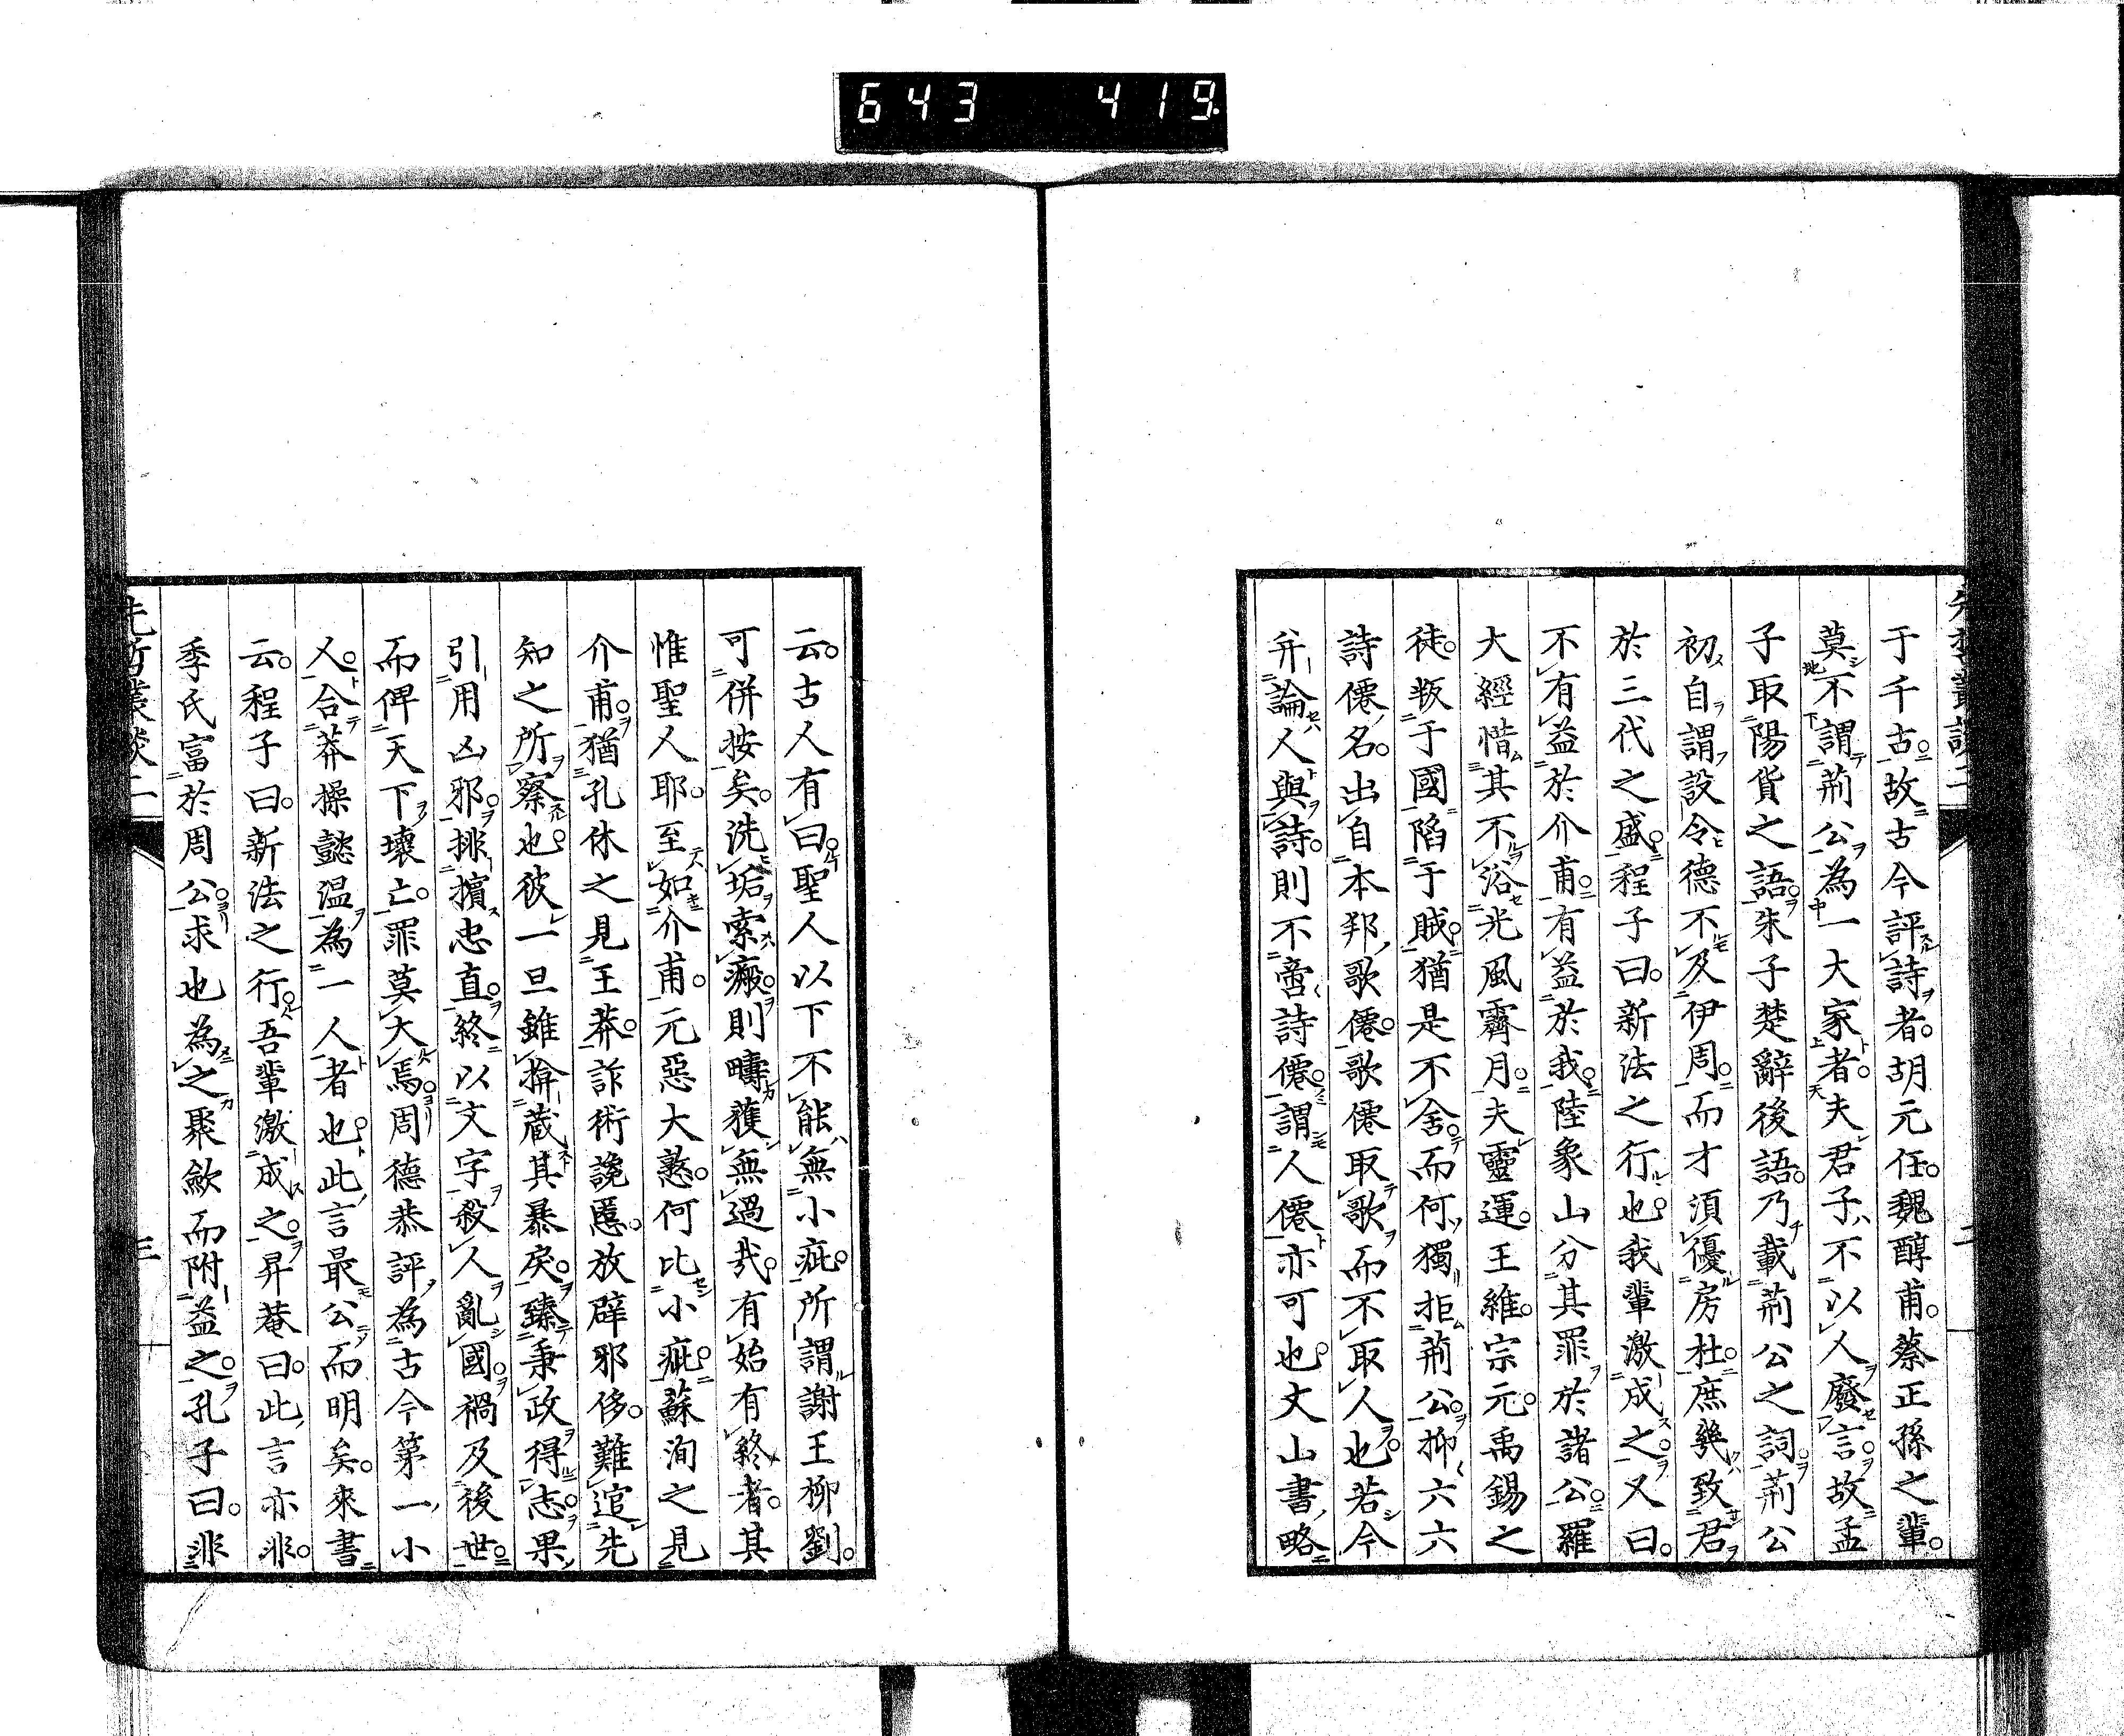 643 419
于千古。故古今評詩者。胡元任。魏醇甫。蔡正孫之輩。
莫不謂荊公為一大家者。夫君子不以人廢言。故孟
子取陽貨之語。朱子楚辭後語。乃載荊公之詞。荊公
初自謂設令德不及伊周。而才須優房杜。庶幾致君
於三代之盛。程子曰。新法之行也。我輩激成之。又曰。
不有益於介甫。有益於我。陸象山分其罪於諸公。羅
大經惜其不浴光風霽月。夫靈運。王維。宗元。禹錫之
徒。叛于國陷于賊。猶是不舍。而何獨拒荊公。抑六六
詩僊名。出自本邦歌僊。歌僊取歌而不取人也。若今
并論人與詩。則不啻詩僊。謂人僊亦可也。丈山書略
云。古人有曰。聖人以下不能無小疵。所謂謝王柳劉。
可併按矣。洗垢索瘢。則疇獲無過哉。有始有終者。其
惟聖人耶。至如介甫。元惡大憝。何比小疵。蘇洵之見
介甫。猶孔休之見王莽。詐術讒慝。放辟邪侈。難逭先
知之所察也。彼一旦雖揜藏其暴戾。臻秉政得志。果
引用凶邪。排擯忠直。終以文字殺人亂國。禍及後世。
而俾天下壞亡。罪莫大焉。周德恭評為古今第一小
人。合莽操懿溫為一人者也。此言最公而明矣。來書
云。程子曰。新法之行。吾輩激成之。昇菴曰。此言亦非。
季氏富於周公。求也為之聚斂而附益之。孔子曰。非
先哲叢談二
三